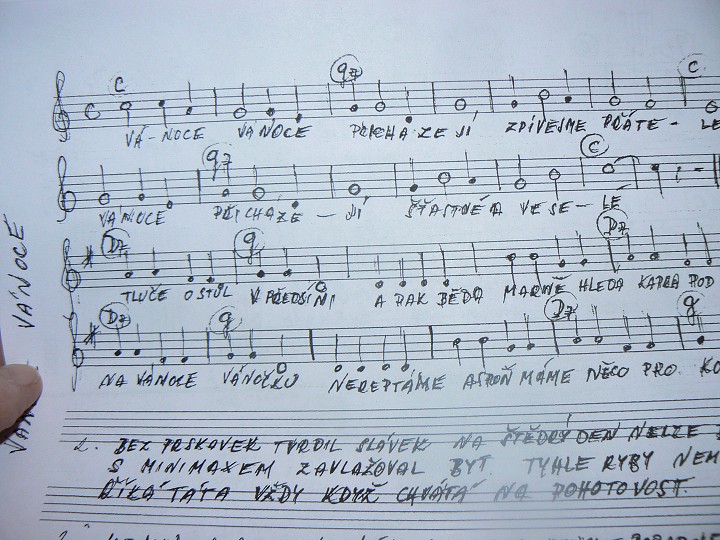 C g7 C
VÁ-NOCE VÁNOCE PŘICHÁZEJÍ ZPÍVEJME PŘÁTE-LE
g7 C
VÁNOCE PŘICHÁZE-JÍ ŠŤASTNÉ A VESE-LÉ
D7 g D7
TLUČE O STŮL V PŘEDSÍNI A PAK BĚDA MARNĚ HLEDÁ KAPRA POD
D7 g D7 g
NA VÁNOCE VÁNOČKU NEREPTÁME ASPOŇ MÁME NĚCO PRO KO
2. BEZ PRSKAVEK TVRDIL SLÁVEK NA ŠTĚDRÝ DEN NELZE
S MINIMAXEM ZAVLAŽOVAL BYT. TYHLE RYBY NEM
ŘÍKÁ TÁTA VŽDY KDYŽ CHVÁTÁ NA POHOTOVOST.
VÁNOCE